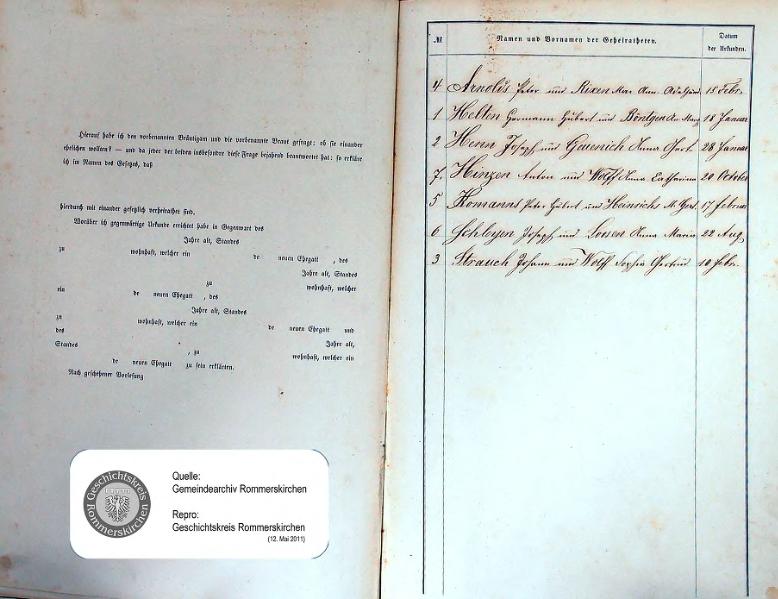 Hierauf habe ich den vorbenannten Bräutigam und die vorbenannte Braut gefragt: ob sie einander
ehelichen wollen? — und da jeder der beiden insbesondere diese Frage bejahend beantwortet hat: so erkläre
ich im Namen des Gesetzes, daß
hierdurch mit einander gesetzlich verheirathet sind.
Worüber ich gegenwärtige Urkunde errichtet habe in Gegenwart des
Jahre alt, Standes
zu wohnhaft, welcher ein de neuen Ehegatt , des
Jahre alt, Standes
zu wohnhaft, welcher
ein de neuen Ehegatt , des
Jahre alt, Standes
zu wohnhaft, welcher ein de neuen Ehegatt und
des Jahre alt,
Standes , zu wohnhaft, welcher ein
de neuen Ehegatt zu sein erklärten.
Nach geschehener Vorlesung
Geschichtskreis Rommerskirchen
Quelle:
Gemeindearchiv Rommerskirchen
Repro:
Geschichtskreis Rommerskirchen
(12. Mai 2011)
№ Namen und Vornamen der Geheiratheten. Datum
der Urkunden.
4 Arnolds Peter und Rixen Mar. Ann. 15 Febr.
1 Helten Hermann Hubert und Böntgen An. Marg. 18 Januar
2 Heren Joseph und Anna Gert. 28 Januar
7. Hinzen Anton und Wolff Anna Catharina 20 October
5 Komanns Peter Hubert und Heinrichs M. Gert. 17 Februar
6 Schleyen Joseph und Loosen Anna Maria 22 Aug.
3 Strauch Johann und Wolff Sophia Gertrud 10 Febr.